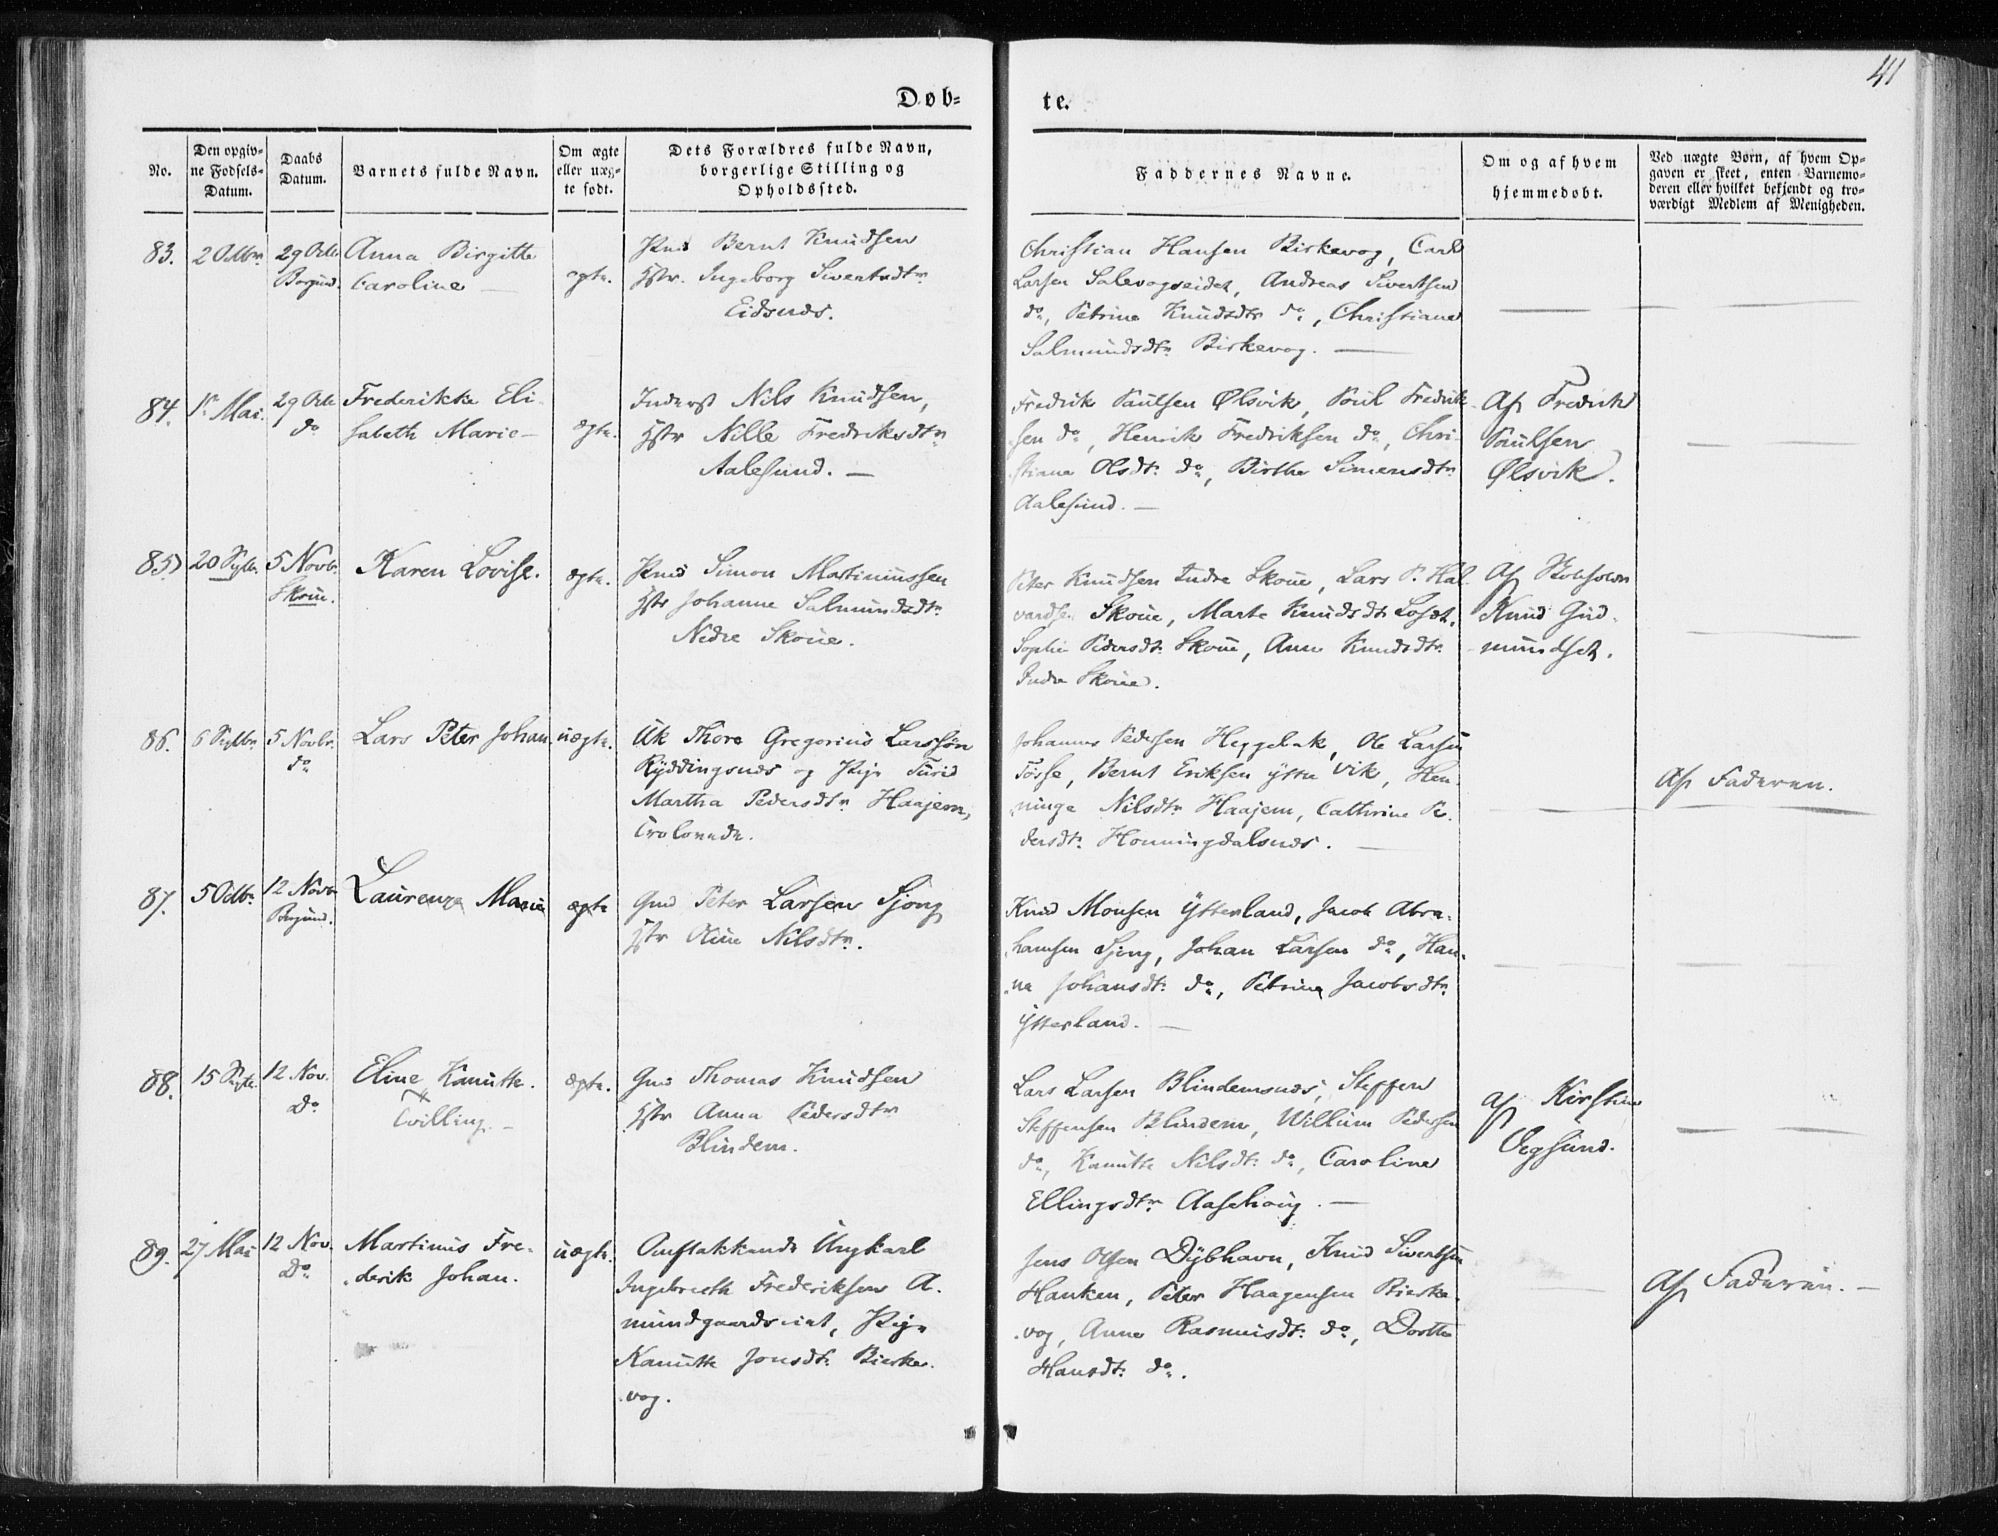 41
Døb-
te.
No.
Den opgiv-
ne Fødsels-
Datum.
Daabs
Datum.
Barnets fulde Navn.
Om ægte
eller uæg-
te født.
Dets Forældres fulde Navn,
borgerlige Stilling og
Opholdssted.
Faddernes Navne.
Om og af hvem
hjemmedøbt.
Ved uægte Børn, af hvem Op-
gaven er skeet, enten Barnemo-
deren eller hvilket bekjendt og tro-
værdigt Medlem af Menigheden.
83. 2 Octbr. 29 Octb.
Borgund.
Anna Birgitte
Caroline —
ægte.
Pmd Bernt Knudsen
Hstr. Ingeborg Sivertsdtr
Eidsnæs.
Christian Hansen Birkevog, Carl
Larsen Salevogseidet, Andreas Sivertsen
do, Petrine Knudsdtr do, Christiane
Salmundsdtr Birkevog. —
84. 1st Mai. 29 Octb.
do
Frederikke Eli-
sabeth Marie —
ægte.
Inderst Nils Knudsen,
Hstr Nille Fredriksdtr
Aalesund. —
Fredrik Paulsen Ølsvik, Poul Fredrik-
sen do, Henrik Fredriksen do, Chri-
stiane Olsdtr do, Birthe Simensdtr
Aalesund. —
Af Fredrik
Paulsen
Ølsvik.
85) 20 Septbr. 5 Novbr.
Skoue.
Karen Lovise.
ægte.
Pmd Simon Martinussen
Hstr Johanne Salmundsdtr
Nedre Skoue.
Peter Knudsen Indre Skoue, Lars P. Hal-
vardsen Skoue, Marte Knudsdtr
Sophie Pedersdtr Skoue, Anne Knudsdtr
Indre Skoue.
Af Skoleholder
Knud Gud-
mundset.
86. 6 Septbr. 5 Novbr.
do
Lars Peter Johan.
uægte.
Uk Thore Gregorius Larssøn
Ryddingsnæs og Pige Turid
Martha Pedersdtr Haajem,
Trolovede.
Johannes Pedersen Heggebak, Ole Larsen
Tosse, Bernt Eriksen Ytre Vik, Hen-
ninge Nilsdtr Haajem, Cathrine Pe-
dersdtr Honningdalsnæs. —
Af Faderen.
87. 5 Octbr. 12 Novbr.
Borgund.
Laurenze Marie
ægte
Gmd Peter Larsen Sjong
Hstr Oline Nilsdtr.
Knud Monsen Ytterland, Jacob Abra-
hamsen Sjong, Johan Larsen do, Han-
na Johansdtr do, Petrine Jacobsdtr
Ytterland. —
88. 15 Septr. 12 Nov.
Do
Eline Kanutte.
Tvilling. —
ægte.
Gmd Thomas Knudsen
Hstr Anna Pedersdtr
Blindem.
Lars Larsen Blindemsnæs, Steffen
Steffensen Blindem, Willum Pedersen
do, Kanutte Nilsdtr do, Caroline
Ellingsdtr Aasehoug. —
Af Kirstine
Vegsund.
89. 27 Mai 12 Nov.
Do
Martinus Fre-
derik Johan.
uægte.
Omflakkende Ungkarl
Ingebreth Frederiksen A-
mundgaardseiet, Pige
Kanutte Jonsdtr Bierke-
vog.
Jens Olsen Dybhavn, Knud Sivertsen
Hanken, Peter Haagensen Bierke-
vog, Anne Rasmusdtr do, Dorthe
Hansdtr do.
Af Faderen. —